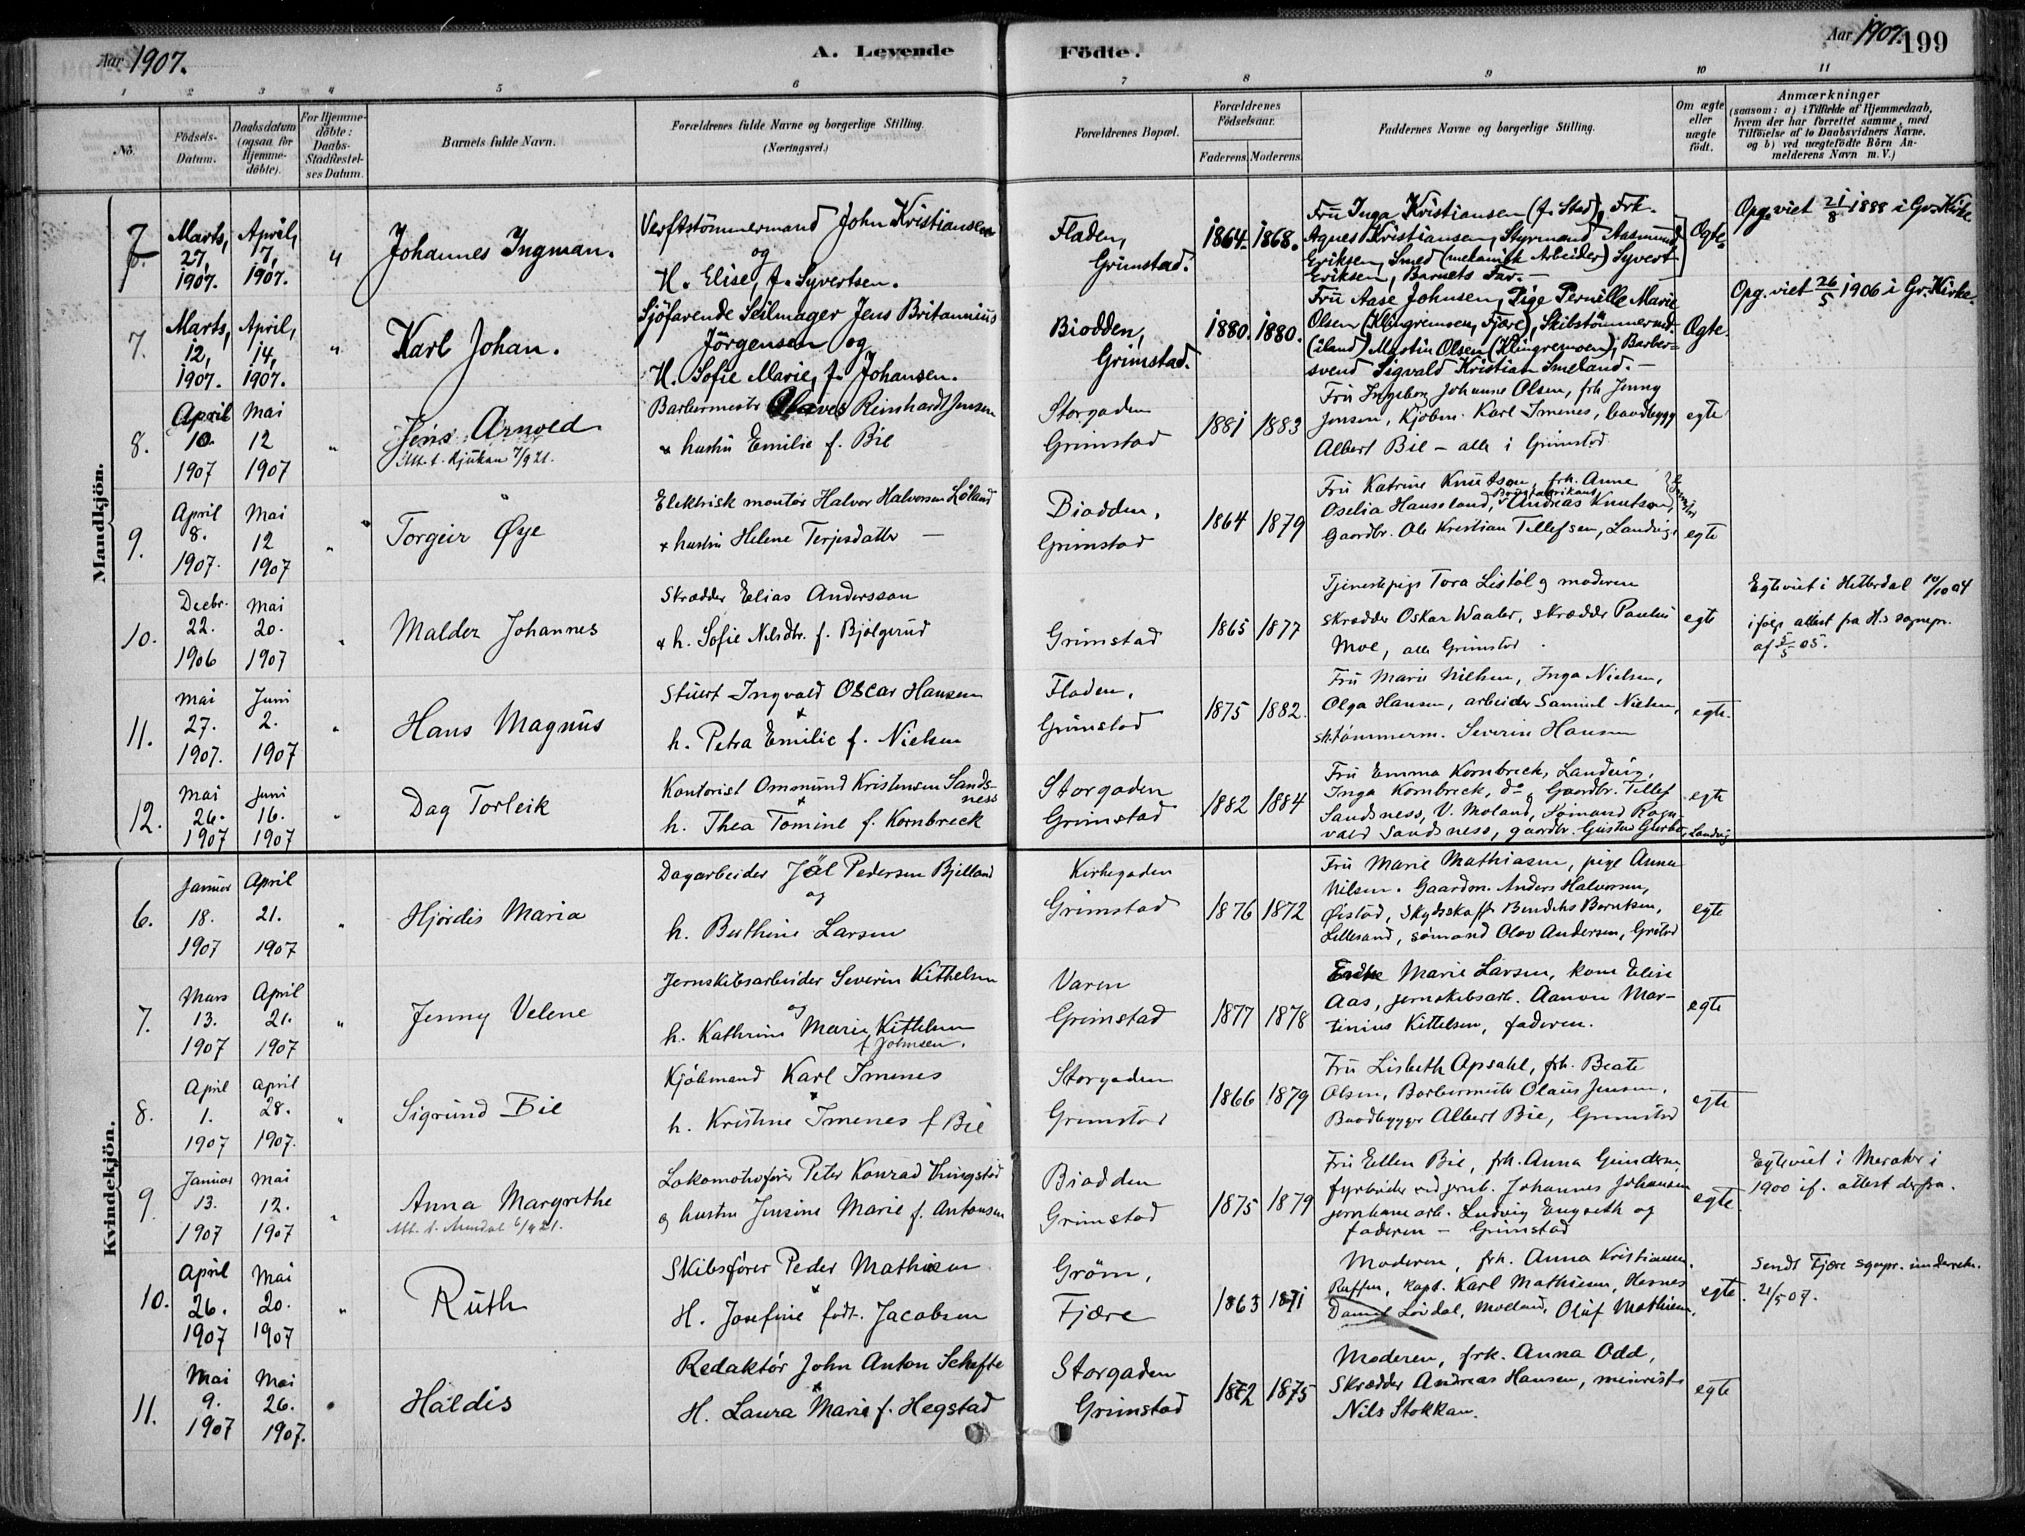 Aar 1907.
A. Levende Födte.
Aar 1907. 199
1 2 3 4 5 6 7 8 9 10 11
No.
Födsels-Datum.
Daabsdatum (ogsaa for Hjemme-döbte).
For Hjemme-döbte: Daabs-Stadfæstel-ses Datum.
Barnets fulde Navn.
Forældrenes fulde Navne og borgerlige Stilling. (Næringsvei.)
Forældrenes Bopæl.
Forældrenes Födselsaar.
Faderens. Moderens.
Faddernes Navne og borgerlige Stilling.
Om ægte eller uægte födt.
Anmærkninger
(saasom: a) i Tilfælde af Hjemmedaab,
hvem der har forrettet samme, med
Tilföielse af to Daabsvidners Navne.
og b) ved uægtefödte Börn An-
melderens Navn m. V.)
Mandkjön.
Marts, 27, 1907.
April, 7, 1907.
"
Johannes Ingman.
Verftstömmermand John Kristiansen
og
H. Elise, f. Syvertsen.
Fladen,
Grimstad.
1864. 1868.
Fru Inga Kristiansen (f. Stad), Frk.
Agnes Kristiansen, Styrmand Aasmund
Eriksen, Smed (mekanisk Arbeider) Syvert
Eriksen, Barnets Far. —
Ægte.
Opg. viet 21/8 1888 i Gr. Kirke
7.
Marts, 12, 1907.
April, 14, 1907.
"
Karl Johan.
Sjöfarende Seilmager Jens Britannius
Jörgensen og
H. Sofie Marie, f. Johansen.
Biodden,
Grimstad.
1880. 1880.
Fru Aase Johnsen, Pige Pernille Marie
Olsen (Klingremoen, Fjære), Skibstömmermd.
(iland) Martin Olsen (Klingremoen), Barber-
svend Sigvald Kristian Imeland. —
Ægte.
Opg. viet 26/5 1906 i Gr. Kirke
8.
April 10. 1907
Mai 12 1907
"
Jens Arnold
Att. t. Rjukan 7/9 21.
Barbermester Olaves Reinhardt Jensen
& hustru Emilie f. Bie
Storgaden
Grimstad
1881 1883
Fru Ingeborg Johanne Olsen, frk Jenny
Jensen, Kjöbm. Karl Imenes, baadbygg
Albert Bie – alle i Grimstad
egte
9.
April 8. 1907.
Mai 12 1907
"
Torgeir Øye
Elektrisk montør Halvor Halvorsen Løland
& hustru Helene Terjesdatter —
Biodden,
Grimstad
1864 1879
Fru Katrine Knutson, frk. Anne
Oselia Haussland, Andreas Knutson,
Gaardbr. Ole Kristian Tellefsen, Landvig.
egte
10.
Decbr. 22. 1906
Mai 20. 1907
"
Malder Johannes
Skrædder Elias Andersson
& h. Sofie Nilsdtr. f. Bjølgerud
Grimstad
1865 1877
Tjenestepige Tora Listöl og moderen
skrædder Oskar Waaler, skrædder Paulus
Moe, alle Grimstad.
egte
Egteviet i Hitterdal 10/10 04
ifølge attest fra H.s sognepr.
af 5/5 05.
11.
Mai 27. 1907.
Juni 2. 1907
"
Hans Magnus
Stuert Ingvald Oscar Hansen
&
h. Petra Emilie f. Nielsen
Fladen,
Grimstad
1875 1882.
Fru Marie Nielsen, Inga Nielsen,
Olga Hansen, arbeider Samuel Nielsen,
sk.tømmerm. Severin Hansen
egte.
12.
Mai 26. 1907
Juni 16. 1907
"
Dag Torleik
Kontorist Ommund Kristensen Sands-
ness
&
h. Thea Tomine f. Kornbreck
Storgaden
Grimstad
1882 1884
Fru Emma Kornbreck, Landvig,
Inga Kornbreck, do, Gaardbr. Tellef
Sandsness, V. Moland, Sømand Ragn-
vald Sandsness, gaardbr. Gustav, Landvig
egte
Kvindekjön.
6.
Januar 18. 1907
April 21. 1907
"
Hjørdis Maria
Dagarbeider Joel Pedersen Bjelland
og
h. Berthine Larsen
Kirkegaden
Grimstad
1876 1872
Fru Marie Mathiasen, pige Anna
Nilsen. Gaardm. Anders Halvorsen,
Øistad, Skydsskaff. Bendiks Berntsen,
Lillesand, sømand Olav Andersen, Grstad
egte
7.
Mars 13. 1907
April 21. 1907
"
Jenny Velene
Jernskibsarbeider Severin Kittelsen
og
h. Kathrine Marie Kittelsen
f Johnsen.
Varen
Grimstad
1877 1878
Enke Marie Larsen, kone Elise
Aas, jernskibsarb. Aanon Mar-
tinius Kittelsen, faderen.
egte
8.
April 1. 1907
April 28. 1907.
"
Sigrund Bie
Kjöbmand Karl Imenes
&
h. Kristine Imenes f Bie
Storgaden
Grimstad
1866 1879
Fru Lisbeth Apsahl, frk. Beate
Olsen, Barbermester Olaus Jensen,
Baadbygger Albert Bie, Grimstad
egte
9.
Januar 13. 1907
Mai 12. 1907
"
Anna Margrethe
Att. t. Arendal 6/4 21.
Lokomotivfører Peter Konrad Vingstad
og hustru Jensine Marie f. Antonsen
Biodden
Grimstad
1875 1879
Fru Ellen Bie, frk. Anna Gundersen,
fyrbøder ved jernb. Johannes Johansen
jernbanearb. Ludvig Engseth og
faderen – Grimstad
egte.
Egteviet i Meraker i
1900 if. attest derfra.
10.
April 26. 1907
Mai 20. 1907
"
Ruth
Skibsfører Peder Mathiesen
&
H. Josefine födt. Jacobsen
Grøm,
Fjære
1863 1871
Moderen, frk. Anna Kristiansen,
kapt. Karl Mathiesen, Hesnes
Daniel Løvdal, Moland, Oluf Mathiesen.
egte.
Sendt Fjære sognpr. underretn.
21/5 07.
11.
Mai 9. 1907
Mai 26. 1907.
"
Haldis
Redaktør John Anton Schefte
&
H. Laura Marie f. Hegstad
Storgaden
Grimstad
1872 1875
Moderen, frk. Anna Odd,
Skrædder Andreas Hansen, minerist
Nils Stokkan.
egte